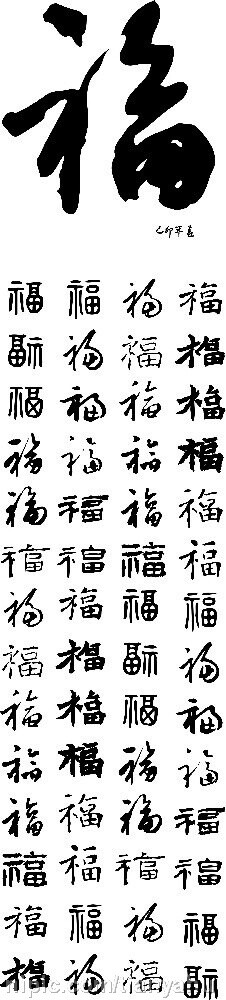 福
卯年
福 福 福 福
福 福 福 福
福 福 福 福
福 福 福 福
福 福 福 福
福 福 福 福
福 福 福 福
福 福 福 福
福 福 福 福
福 福 福 福
福 福 福 福
福 福 福 福
福 福 福 福
福 福 福 福